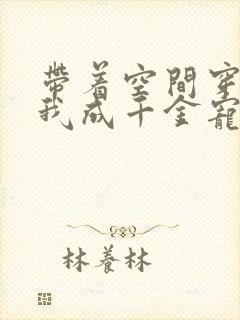 帶着空間穿
我成千金寵
林養林